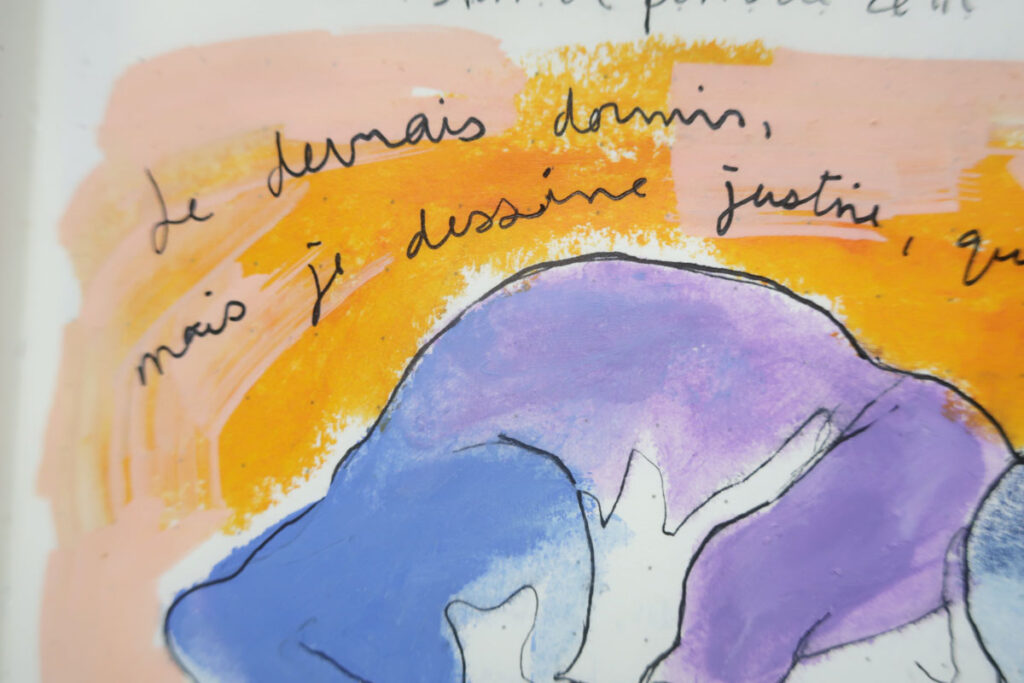 Je devrais dormir,
mais je dessine justine, qu